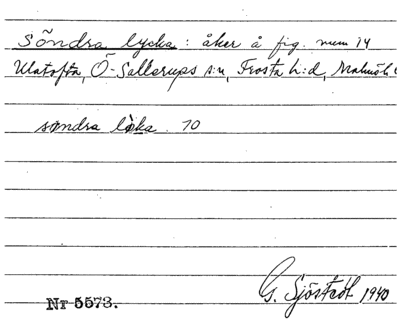 Söndra lycka: åker å fig. num 14
Ulatofta, Ö-Sallerups s:n, Frosta h:d, Malmöh
söndra løka. 70
G. Sjöstedt 1940
Nr 5573.